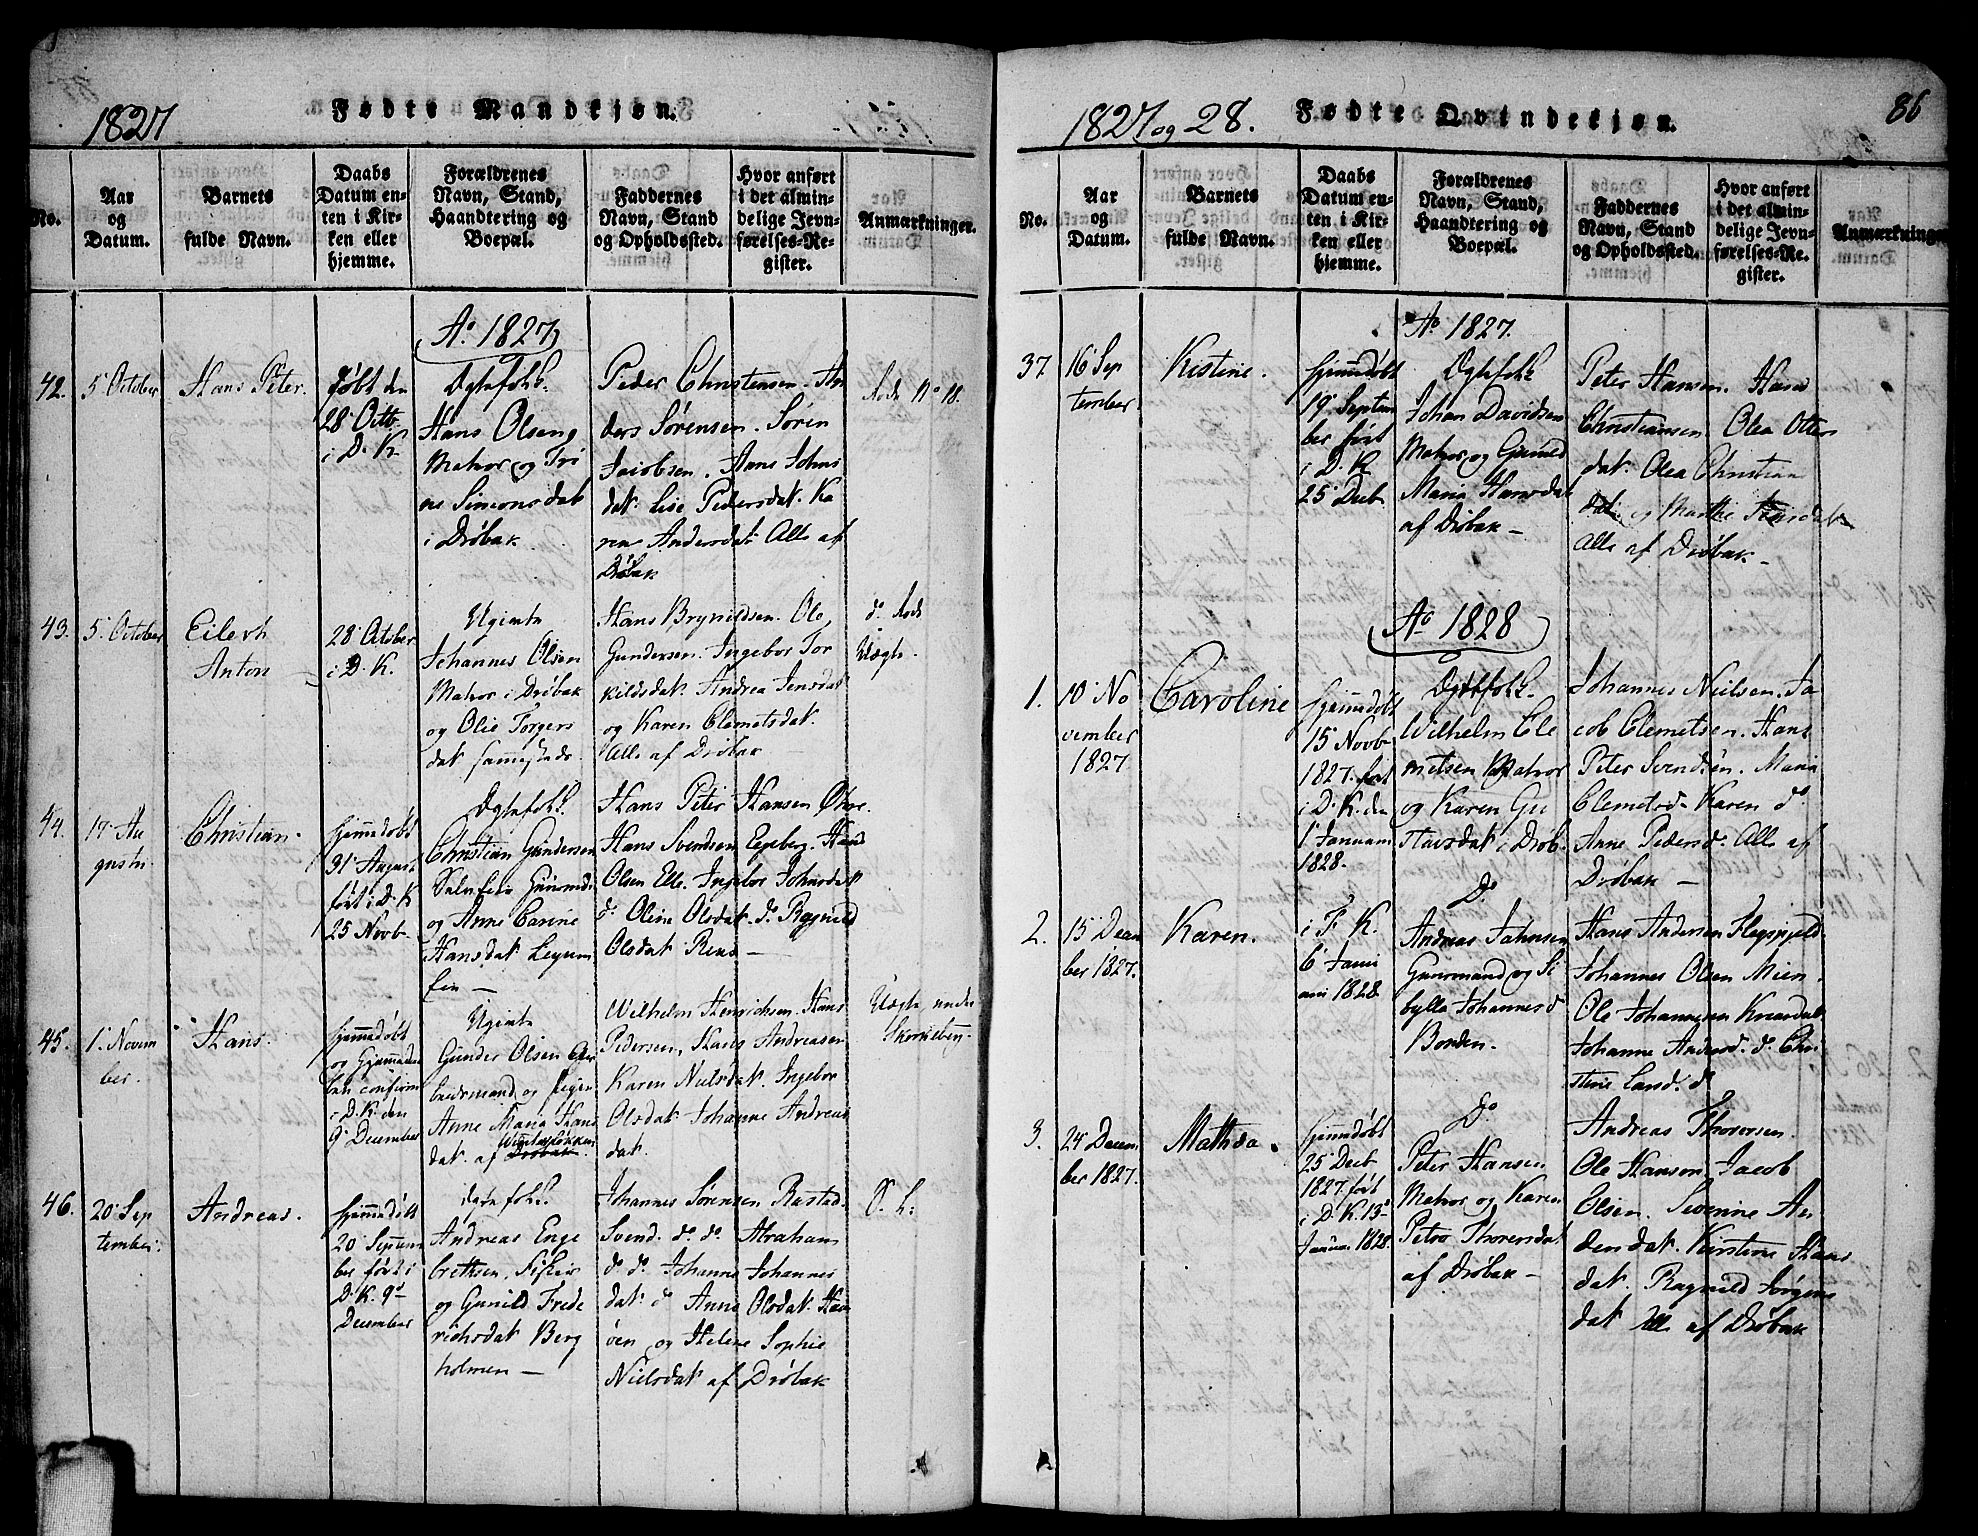 1827
Fødte Mandkjøn.
No.
Aar
og
Datum.
Barnets
fulde Navn.
Daabs
Datum en-
ten i Kir-
ken eller
hjemme.
Forældrenes
Navn, Stand,
Haandtering og
Boepæl.
Faddernes
Navn, Stand
og Opholdssted.
Hvor anført
i det almin-
delige Jevn-
førelses-Re-
gister.
Anmærkninger.
Ao 1827
42.
5 October
Hans Peter.
døbt den
28 Octb.
i D. K.
Ægtefolk.
Hans Olsen
Matros og Tri
ne Simonsdat
i Drøbak.
Peder Christensen. An
ders Sørensen. Søren
Jacobsen. Anne Johns
dat. Lise Pedersdat. Ka
ren Andersdat. Alle af
Drøbak
No 18.
43.
5 October
Eilert
Anton
28 October
i D. K.
Ugivte
Johannes Olsen
Matros i Drøbak
og Olie Torgers
dat sammesteds.
Hans Brynildsen. Ole
Gundersen. Ingebor Tor
kildsdat. Andrea Jensdat
og Karen Clemetsdat.
Alle af Drøbak
do
Uægte.
44.
17 Au
gusti
Christian.
hjemmedøbt
31 August
ført i D. K
25 Novb
Ægtefolk.
Christian Gundersen
og Anne Carine
Hansdat
Hans Peter Hansen
Hans Svendsen Egeberg. Hans
Olsen Elle. Ingebor Johnsdat
do Oline Olsdat. do Ragnild
Olsdat
45.
1 Novem
ber.
Hans.
hjemmedøbt
og Hjemmedaa
ben confirm
i D. K. den
9 December
Ugivte
Gunder Olsen Ar
beidsmand og Pigen
Anne Maria Hans
dat. af Drøbak
Wilhelm Henrichsen. Hans
Pedersen, Hans Andreasen
Karen Nielsdat. Ingebor
Olsdat Johanne Andreas
dat.
Uægte
46.
20 Sep
tember.
Andreas.
hjemmedøbt
20 Septem
ber ført i
D. K. 9de
December
Ægtefolk.
Andreas Enge
bretsen, Fisker
og Gunild Frede
richsdat Berg
holmen
Johannes Sørensen
Svend. do do. Abraham
do do. Johanne Johannes
dat. do Anne Olsdat.
og Helene Sophie
Nielsdat af Drøbak
1827 og 28.
Fødte Qvindekjøn.
86
No.
Aar
og
Datum.
Barnets
fulde Navn.
Daabs
Datum en-
ten i Kir-
ken eller
hjemme.
Forældrenes
Navn, Stand,
Haandtering og
Boepæl.
Faddernes
Navn, Stand
og Opholdssted.
Hvor anført
i det almin-
delige Jevn-
førelses-Re-
gister.
Anmærkninger
Ao 1827.
37.
16 Sep
tember.
Kistine.
hjemmedøbt
19 Septem
ber ført
i D. K
25 Decb.
Ægtefolk
Johan Davidsen
Matros og Gunild
Maria Hansdat
af Drøbak
Peter Hansen. Hans
Christiansen Olea Otters
dat. Olea Christian
dat. og Marthe
Alle af Drøbak.
Ao 1828
1.
10 No
vember
1827
Caroline
hjemmedøbt
15 Novb
1827. ført
i D. K. den
1 Januarii
1828.
Ægtefolk.
Wilhelm Cle
metsen Matros
og Karen Gu
stavsdat i Drøb.
Johannes Nielsen. Ja
cob Clemetsen. Hans
Peter Svendsen. Maria
Clemetsd. Karen do
Anne Pedersd. Alle af
Drøbak
2.
15 Decem
ber 1827.
Karen.
i F. K.
6 Janu
arii 1828
Do
Andreas Jahnsen
Gaarmand og Si
bylla Johannesd
Hans Andersen
Johannes Olsen
Ole Johannesen
Johanne Andersd. do Chri
stine
3.
24 Decem
ber 1827.
Mathea.
hjemmedøbt
25 Decb
1827. ført
i D. K. 13
Januar. 1828.
Do
Peter Hansen
Matros og Karen
Petro Thorensdat
af Drøbak
Andreas Thoresen.
Ole Hansen Jacob
Olsen. Severine An
densdat. Kirstine Hans
dat. Ragnild Jørgens
dat. Alle af Drøbak